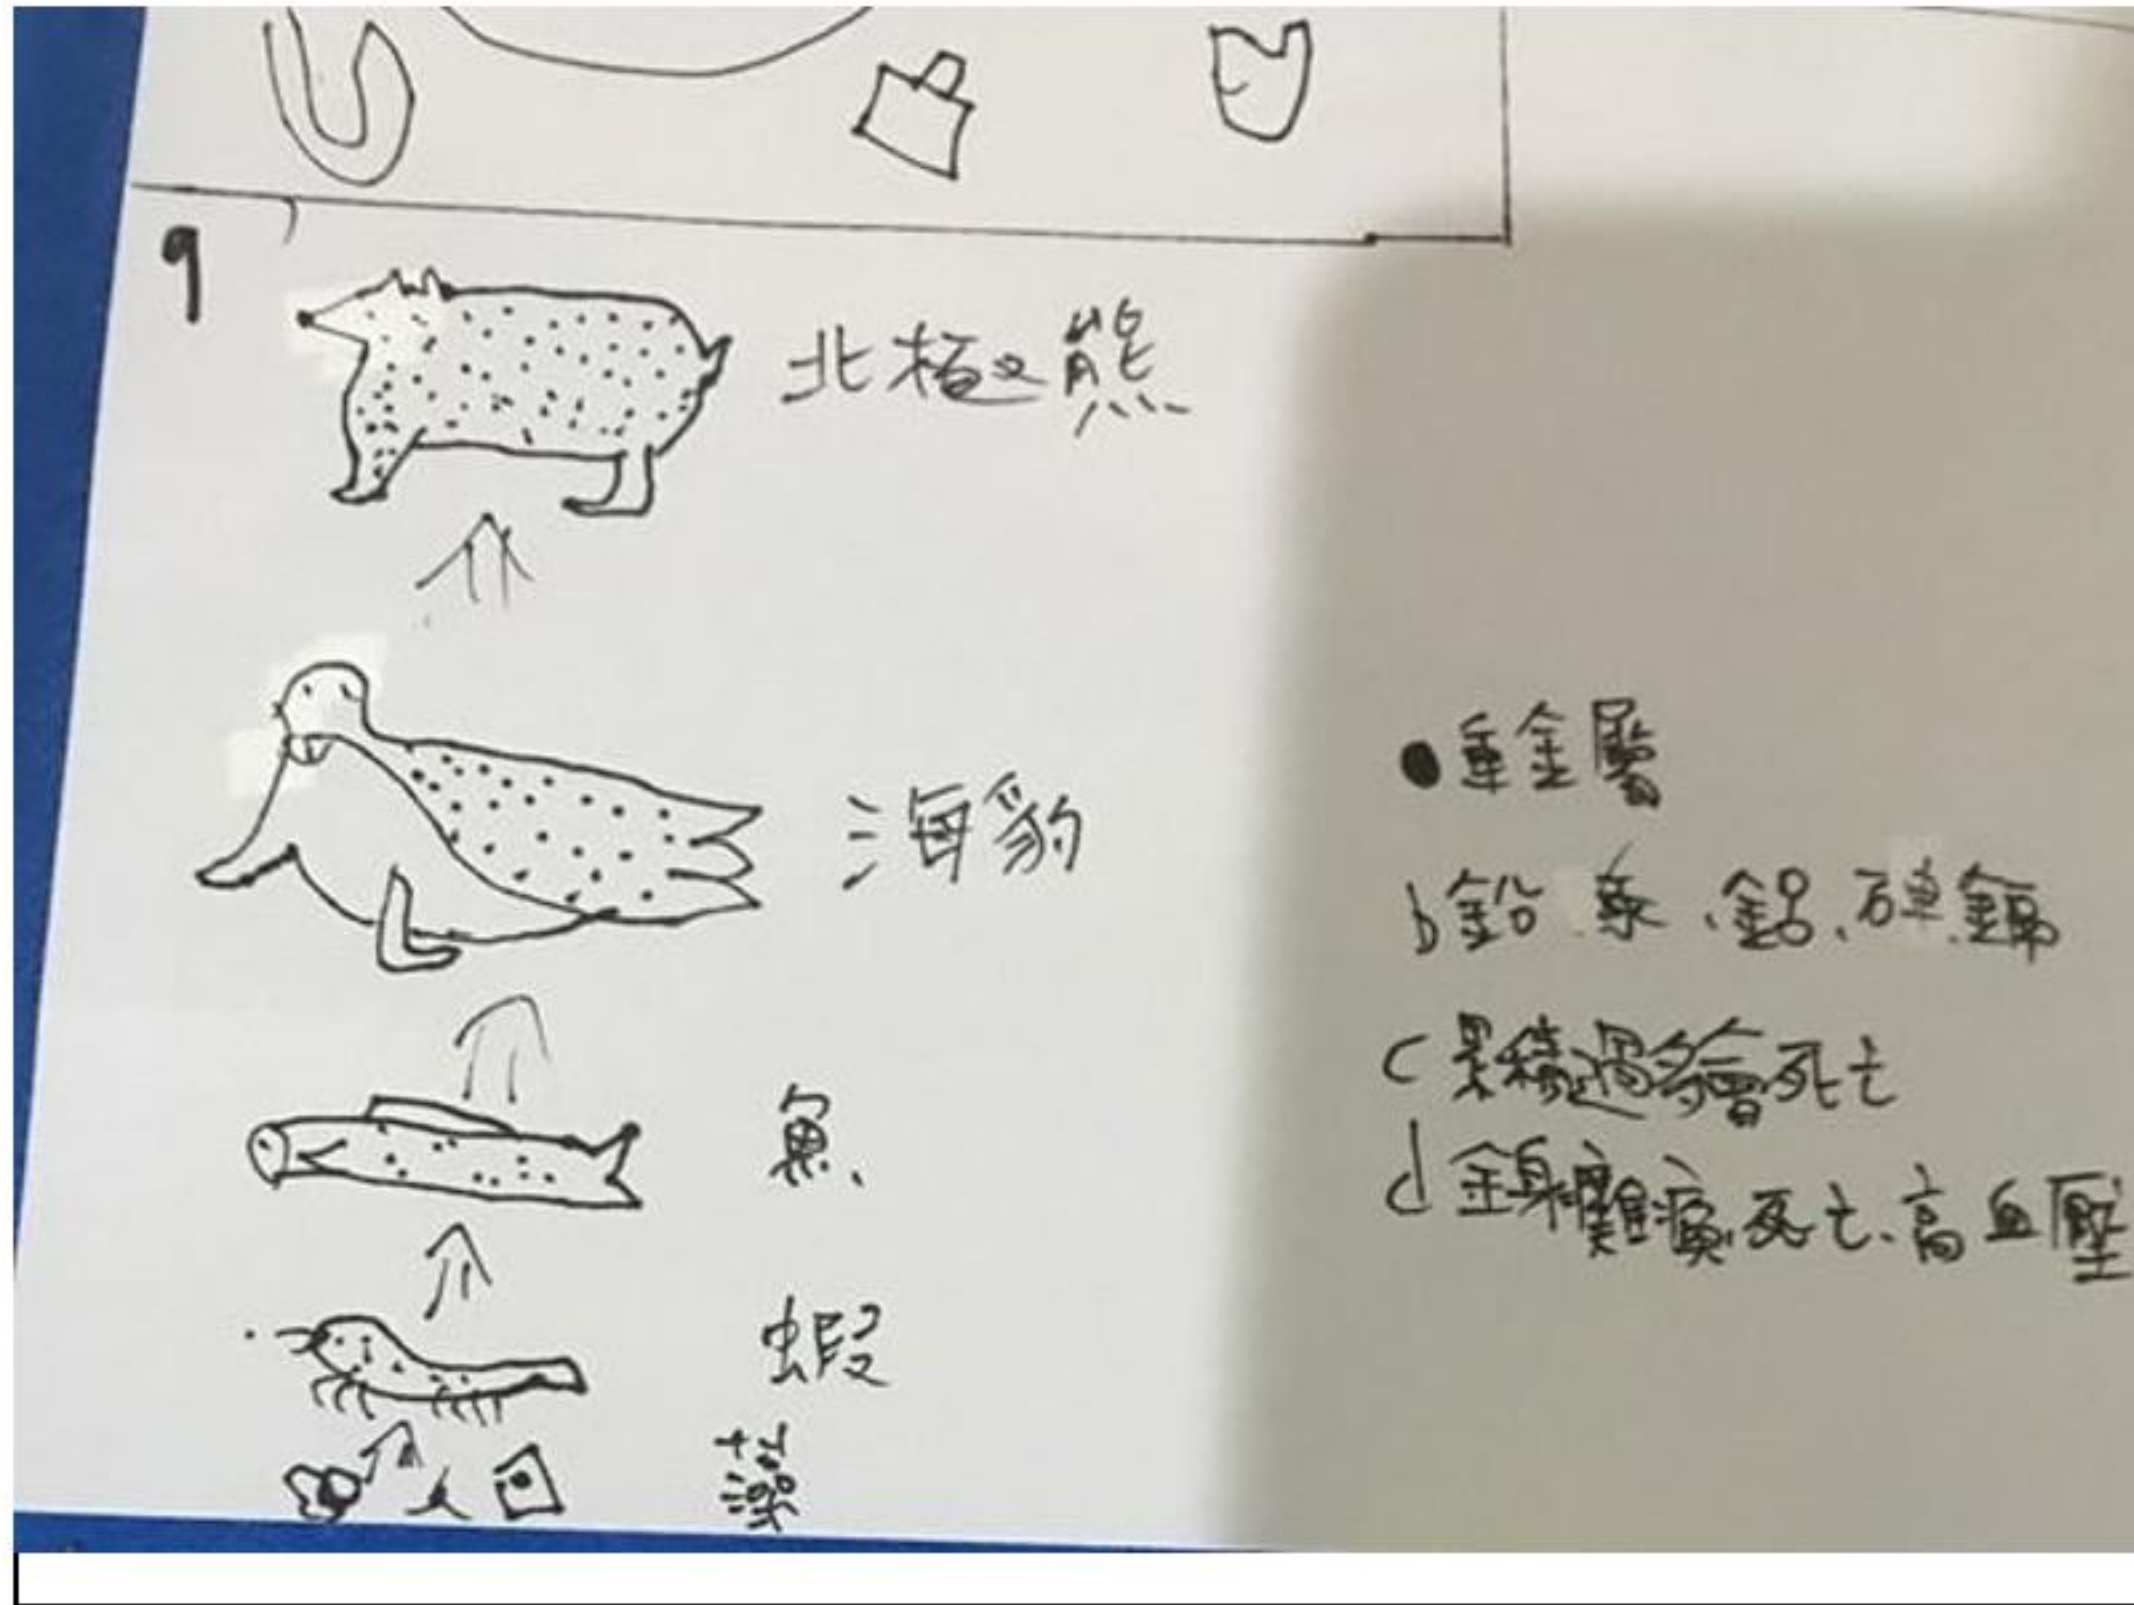 9
北極熊
海豹
魚
蝦
藻
●重金屬
b鉛、汞、鋁、砷、鎘
c累積過多會死亡
d 全身癱瘓、死亡、高血壓